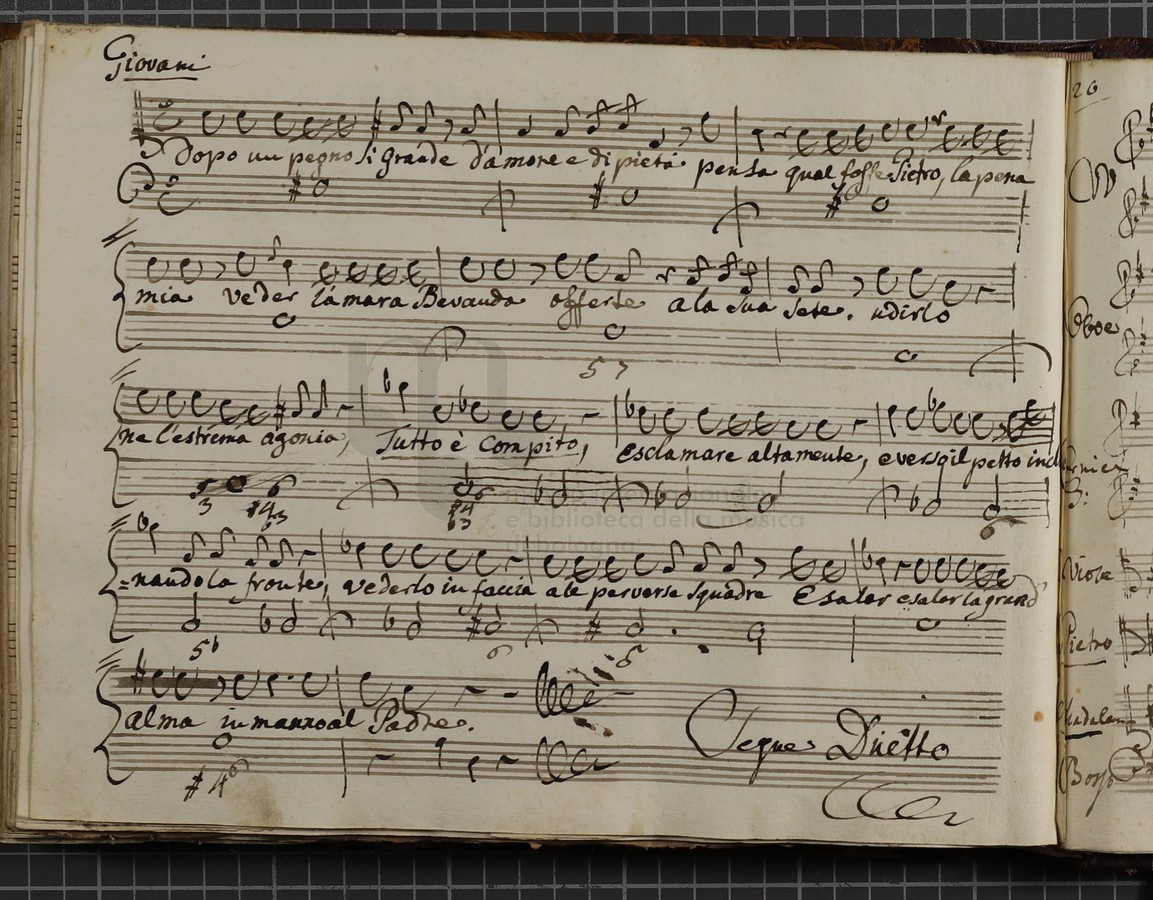 Giovani
Dopo un pegno sì grande d'amore e di pietà pensa qual fosse Pietro, la pena
mia veder l'amara Bevanda offerte a la sua sete. udirlo
5 7
ne l'estrema agonia, Tutto è Compito, esclamare altamente, e verso il petto incli
3 #4 3
=nando la fronte, vederlo in faccia a le perverse squadre Esalar esalar la grand'
5b 6
alma in manno al Padre.
#4 6
Segue Duetto
museo internazionale
e biblioteca della musica
di bologna
26
Oboe
Viole
Pietro